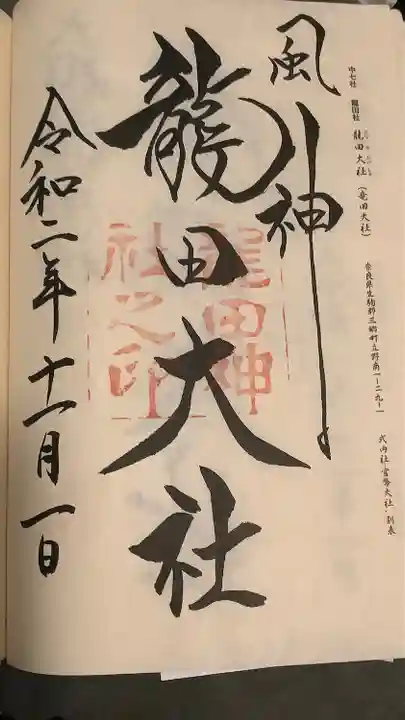 中七社 龍田社 龍田大社 (竜田大社)
奈良県生駒郡三郷町立野南一ー二九ー一
式内社・官幣大社・別表
風神
龍田大社
龍田神
社之印
令和二年十一月一日